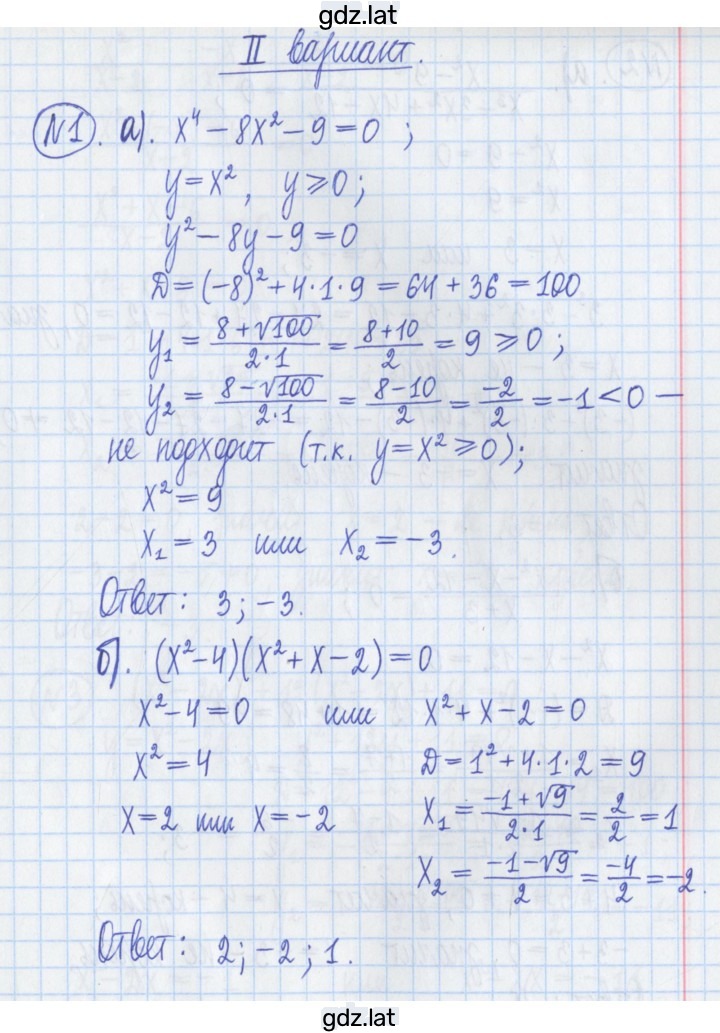 gdz.lat
II вариант.
№1. а). x⁴ − 8x² − 9 = 0 ;
y = x², y ⩾ 0 ;
y² − 8y − 9 = 0
Д = (−8)² + 4·1·9 = 64 + 36 = 100
y₁ = (8 + √100)/(2·1) = (8+10)/2 = 9 ⩾ 0 ;
y₂ = (8 − √100)/(2·1) = (8−10)/2 = −2/2 = −1 < 0 —
не подходит (т.к. y = x² ⩾ 0) ;
x² = 9
x₁ = 3 или x₂ = −3.
Ответ: 3 ; −3.
б). (x² − 4)(x² + x − 2) = 0
x² − 4 = 0 или x² + x − 2 = 0
x² = 4 Д = 1² + 4·1·2 = 9
x = 2 или x = −2 x₁ = (−1 + √9)/(2·1) = 2/2 = 1
x₂ = (−1 − √9)/2 = −4/2 = −2.
Ответ: 2 ; −2 ; 1.
gdz.lat